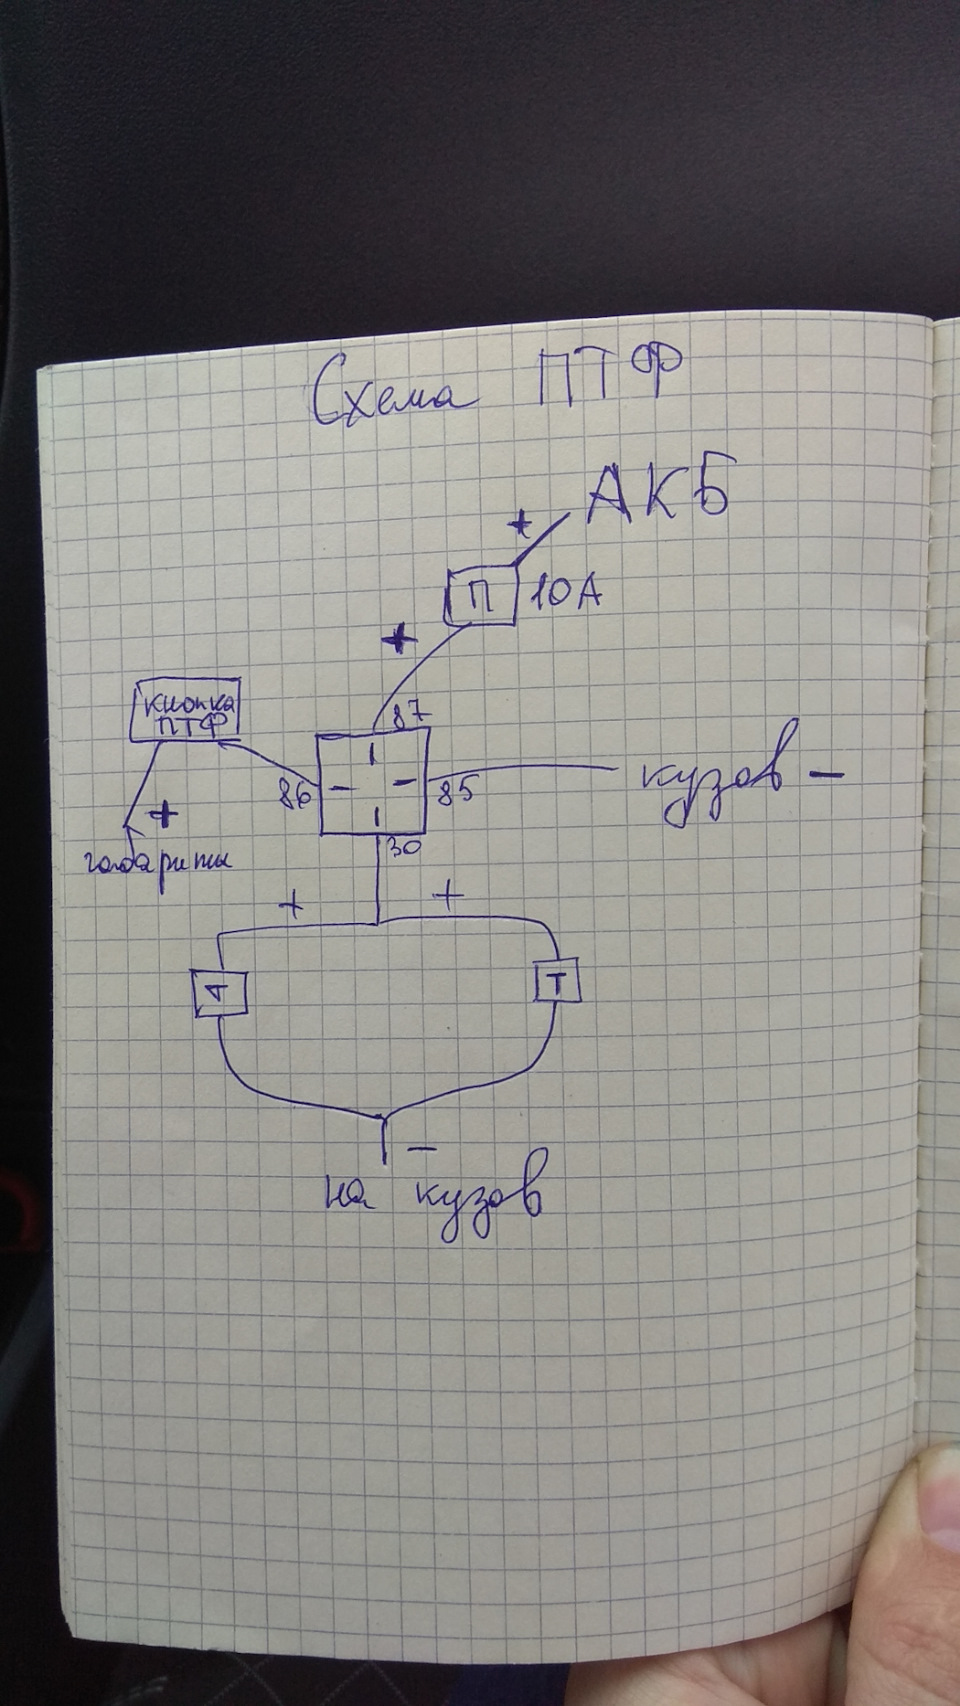 Схема ПТФ
+ АКБ
П 10А
+
87
кнопка
ПТФ
86 85
кузов -
+
габариты
30
+ +
Т Т
-
на кузов